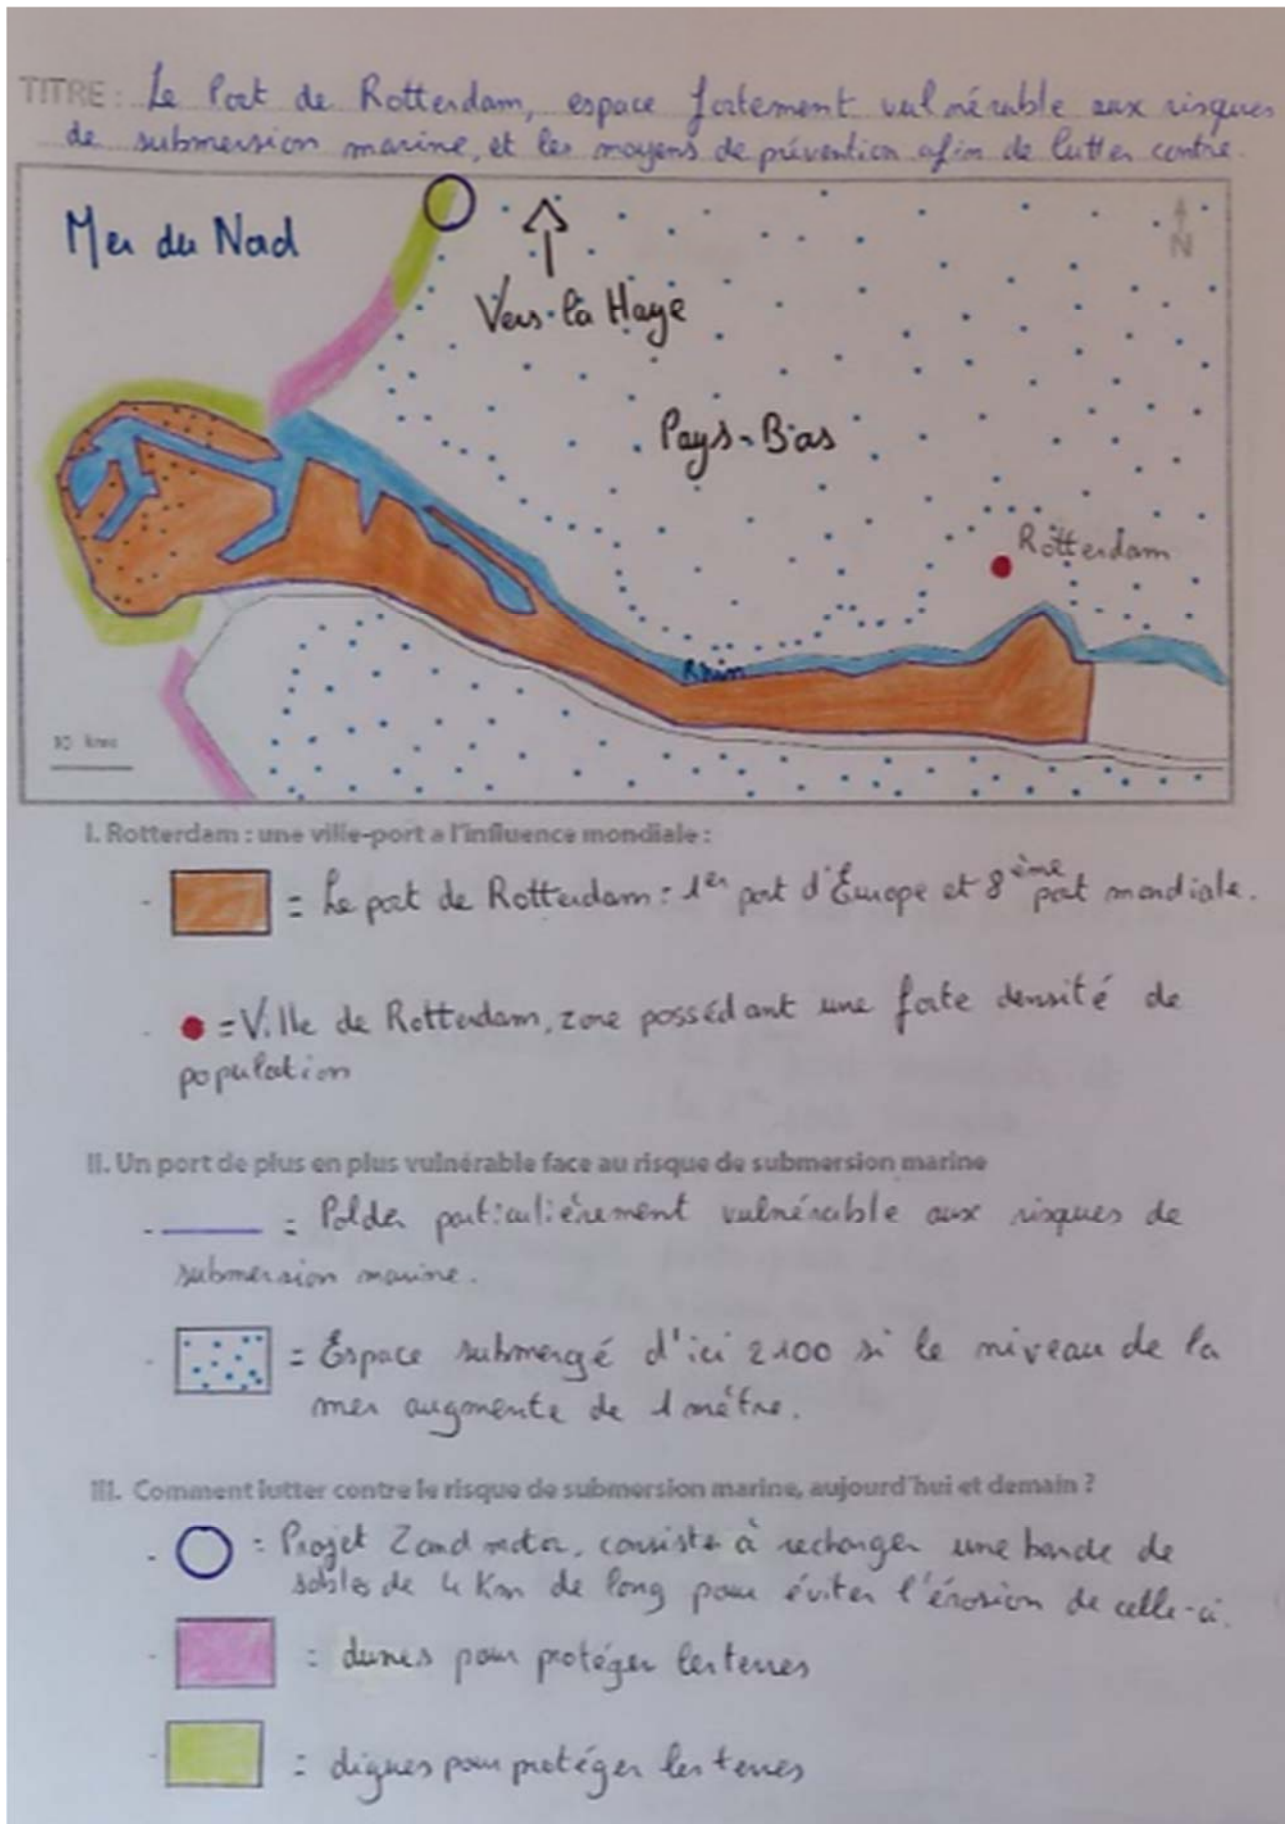 TITRE : Le Port de Rotterdam, espace fortement vulnérable aux risques
de submersion marine, et les moyens de prévention afin de lutter contre.
Mer du Nord
N
Vers la Haye
Pays-Bas
Rotterdam
Rhin
10 kms
I. Rotterdam : une ville-port a l'influence mondiale :
- = Le port de Rotterdam : 1er port d'Europe et 8ème port mondiale.
- = Ville de Rotterdam, zone possédant une forte densité de
population
II. Un port de plus en plus vulnérable face au risque de submersion marine
- = Polder particulièrement vulnérable aux risques de
submersion marine.
- = Espace submergé d'ici 2100 si le niveau de la
mer augmente de 1 mètre.
III. Comment lutter contre le risque de submersion marine, aujourd'hui et demain ?
- = Projet Zand motor, consiste à recharger une bande de
sables de 4 Km de long pour éviter l'érosion de celle-ci.
- = dunes pour protéger les terres
- = digues pour protéger les terres